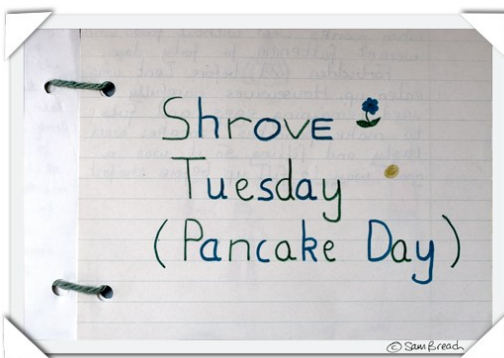 Shrove
Tuesday
(Pancake Day)
© Sam Breach